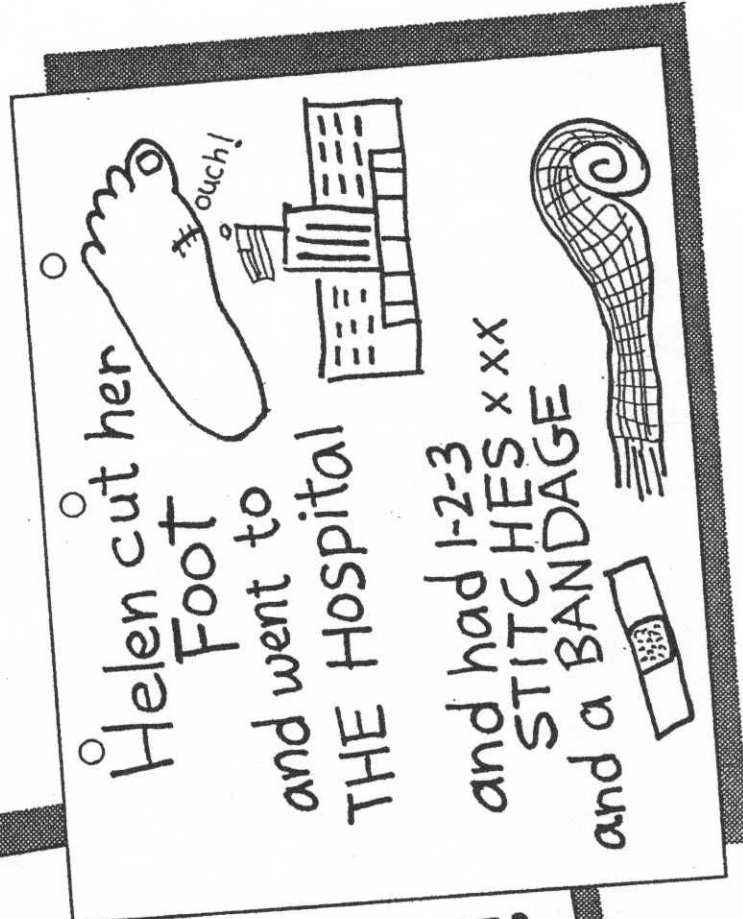 Helen cut her
FOOT
ouch!
and went to
THE Hospital
and had 1-2-3
STITCHES x x x
and a BANDAGE